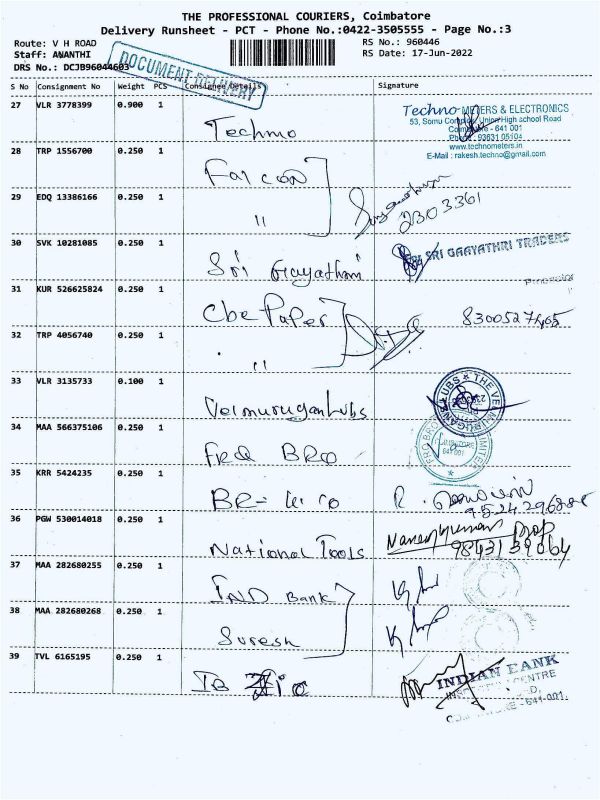 THE PROFESSIONAL COURIERS, Coimbatore
Delivery Runsheet - PCT - Phone No.:0422-3505555 - Page No.:3
Route: V H ROAD
RS No.: 960446
Staff: ANANTHI
RS Date: 17-Jun-2022
DRS No.: DCJB96044603
DOCUMENT DELIVERY
S No Consignment No Weight PCS Consignee Details Signature
27 VLR 3778399 0.900 1
Techno
Techno METERS & ELECTRONICS
53, Somu Complex, Union High school Road
Coimbatore - 641 001
Phone : 93631 05104
www.technometers.in
E-Mail : rakesh.techno@gmail.com
28 TRP 1556700 0.250 1
Falcon
29 EDQ 13386166 0.250 1
"
2303361
30 SVK 10281085 0.250 1
Sri Gayathri
SRI GAAYATHRI TRADERS
31 KUR 526625824 0.250 1
Cbe Paper
8300527405
32 TRP 4056740 0.250 1
"
33 VLR 3135733 0.100 1
Velmurugan Lubs
34 MAA 566375106 0.250 1
Fred BRO
35 KRR 5424235 0.250 1
BR-
R.
36 PGW 530014018 0.250 1
National Tools
9843139064
37 MAA 282680255 0.250 1
IND Bank
38 MAA 282680268 0.250 1
Suresh
39 TVL 6165195 0.250 1
IB
INDIAN BANK
CENTRE
-641-001.